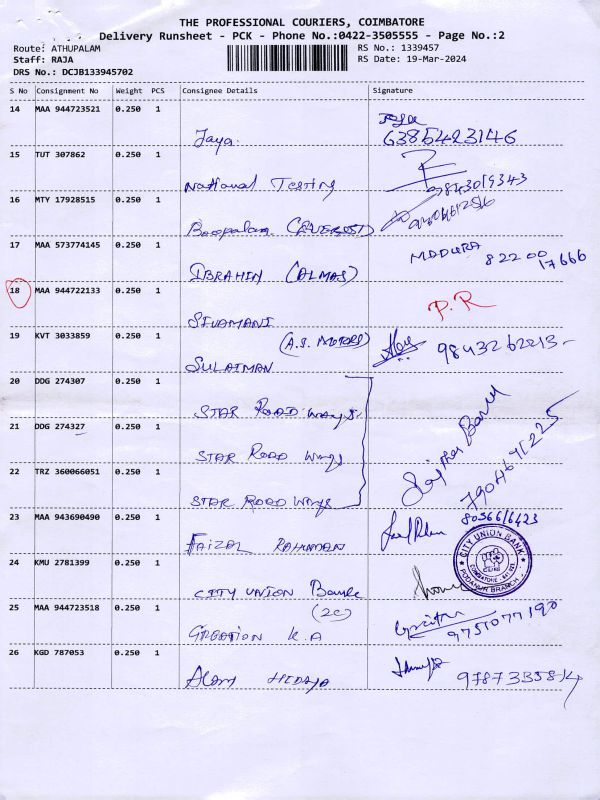 THE PROFESSIONAL COURIERS, COIMBATORE
Delivery Runsheet - PCK - Phone No.:0422-3505555 - Page No.:2
Route: ATHUPALAM RS No.: 1339457
Staff: RAJA RS Date: 19-Mar-2024
DRS No.: DCJB133945702
S No Consignment No Weight PCS Consignee Details Signature
14 MAA 944723521 0.250 1
Jaya 6385423146
15 TUT 307862 0.250 1
National Testing 9843019343
16 MTY 17928515 0.250 1
Boopalam (EVEREST)
17 MAA 573774145 0.250 1 MADURA
IBRAHIM (ALMAS) 82200 17666
18 MAA 944722133 0.250 1 P.R
SIVAMANI
19 KVT 3033859 0.250 1 (A.S. MOTORS)
SULAIMAN 9843262213
20 DDG 274307 0.250 1
STAR ROAD ways
21 DDG 274327 0.250 1
STAR ROAD Ways
22 TRZ 360066051 0.250 1
STAR ROAD Ways
23 MAA 943690490 0.250 1 8056616423
FAIZAL RAHUMAN
24 KMU 2781399 0.250 1
CITY UNION Bank
CITY UNION BANK
CUB
COIMBATORE
PODANUR BRANCH
25 MAA 944723518 0.250 1 (2C)
CREATION K.A 9751077190
26 KGD 787053 0.250 1
Alam HIDAYA 9787335814